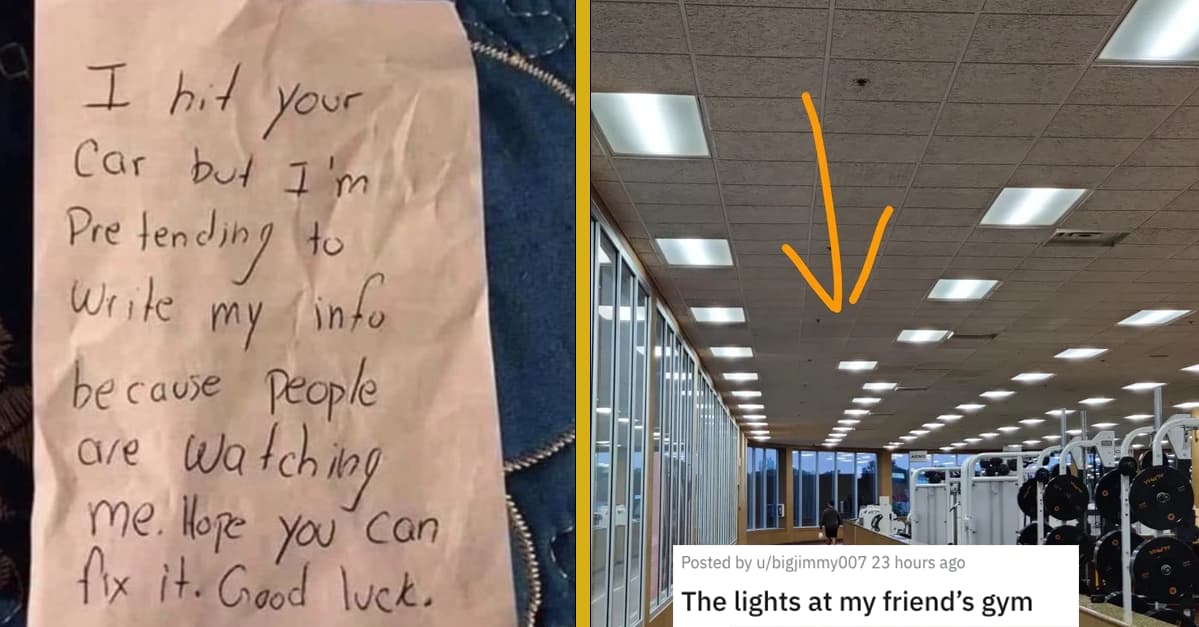 I hit your
Car but I'm
Pretending to
Write my info
because people
are watching
me. Hope you can
fix it. Good luck.
Posted by u/bigjimmy007 23 hours ago
The lights at my friend's gym